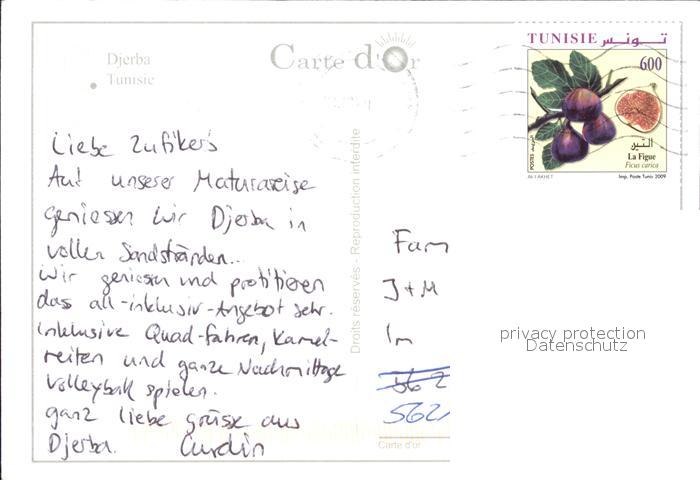 Djerba
Tunisie
Carte d'Or
TUNISIE تونس
600
التين
La Figue
Ficus carica
POSTES البريد
Imp. Poste Tunis 2009
Liebe Zufiker's
Auf unserer Maturareise
geniessen wir Djerba in
vollen Sandstränden...
Wir geniesen und profitieren
das all-inklusiv-Angebot sehr.
Inklusive Quad-fahren, Kamel-
reiten und ganze Nachmittage
Volleyball spielen.
ganz liebe grüsse aus
Djerba. Curdin
Droits réservés - Reproduction interdite
Fam
J + M
Im
562
Carte d'or
privacy protection
Datenschutz